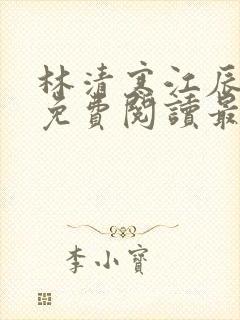 林清寒江辰
免費閱讀最
李小寶